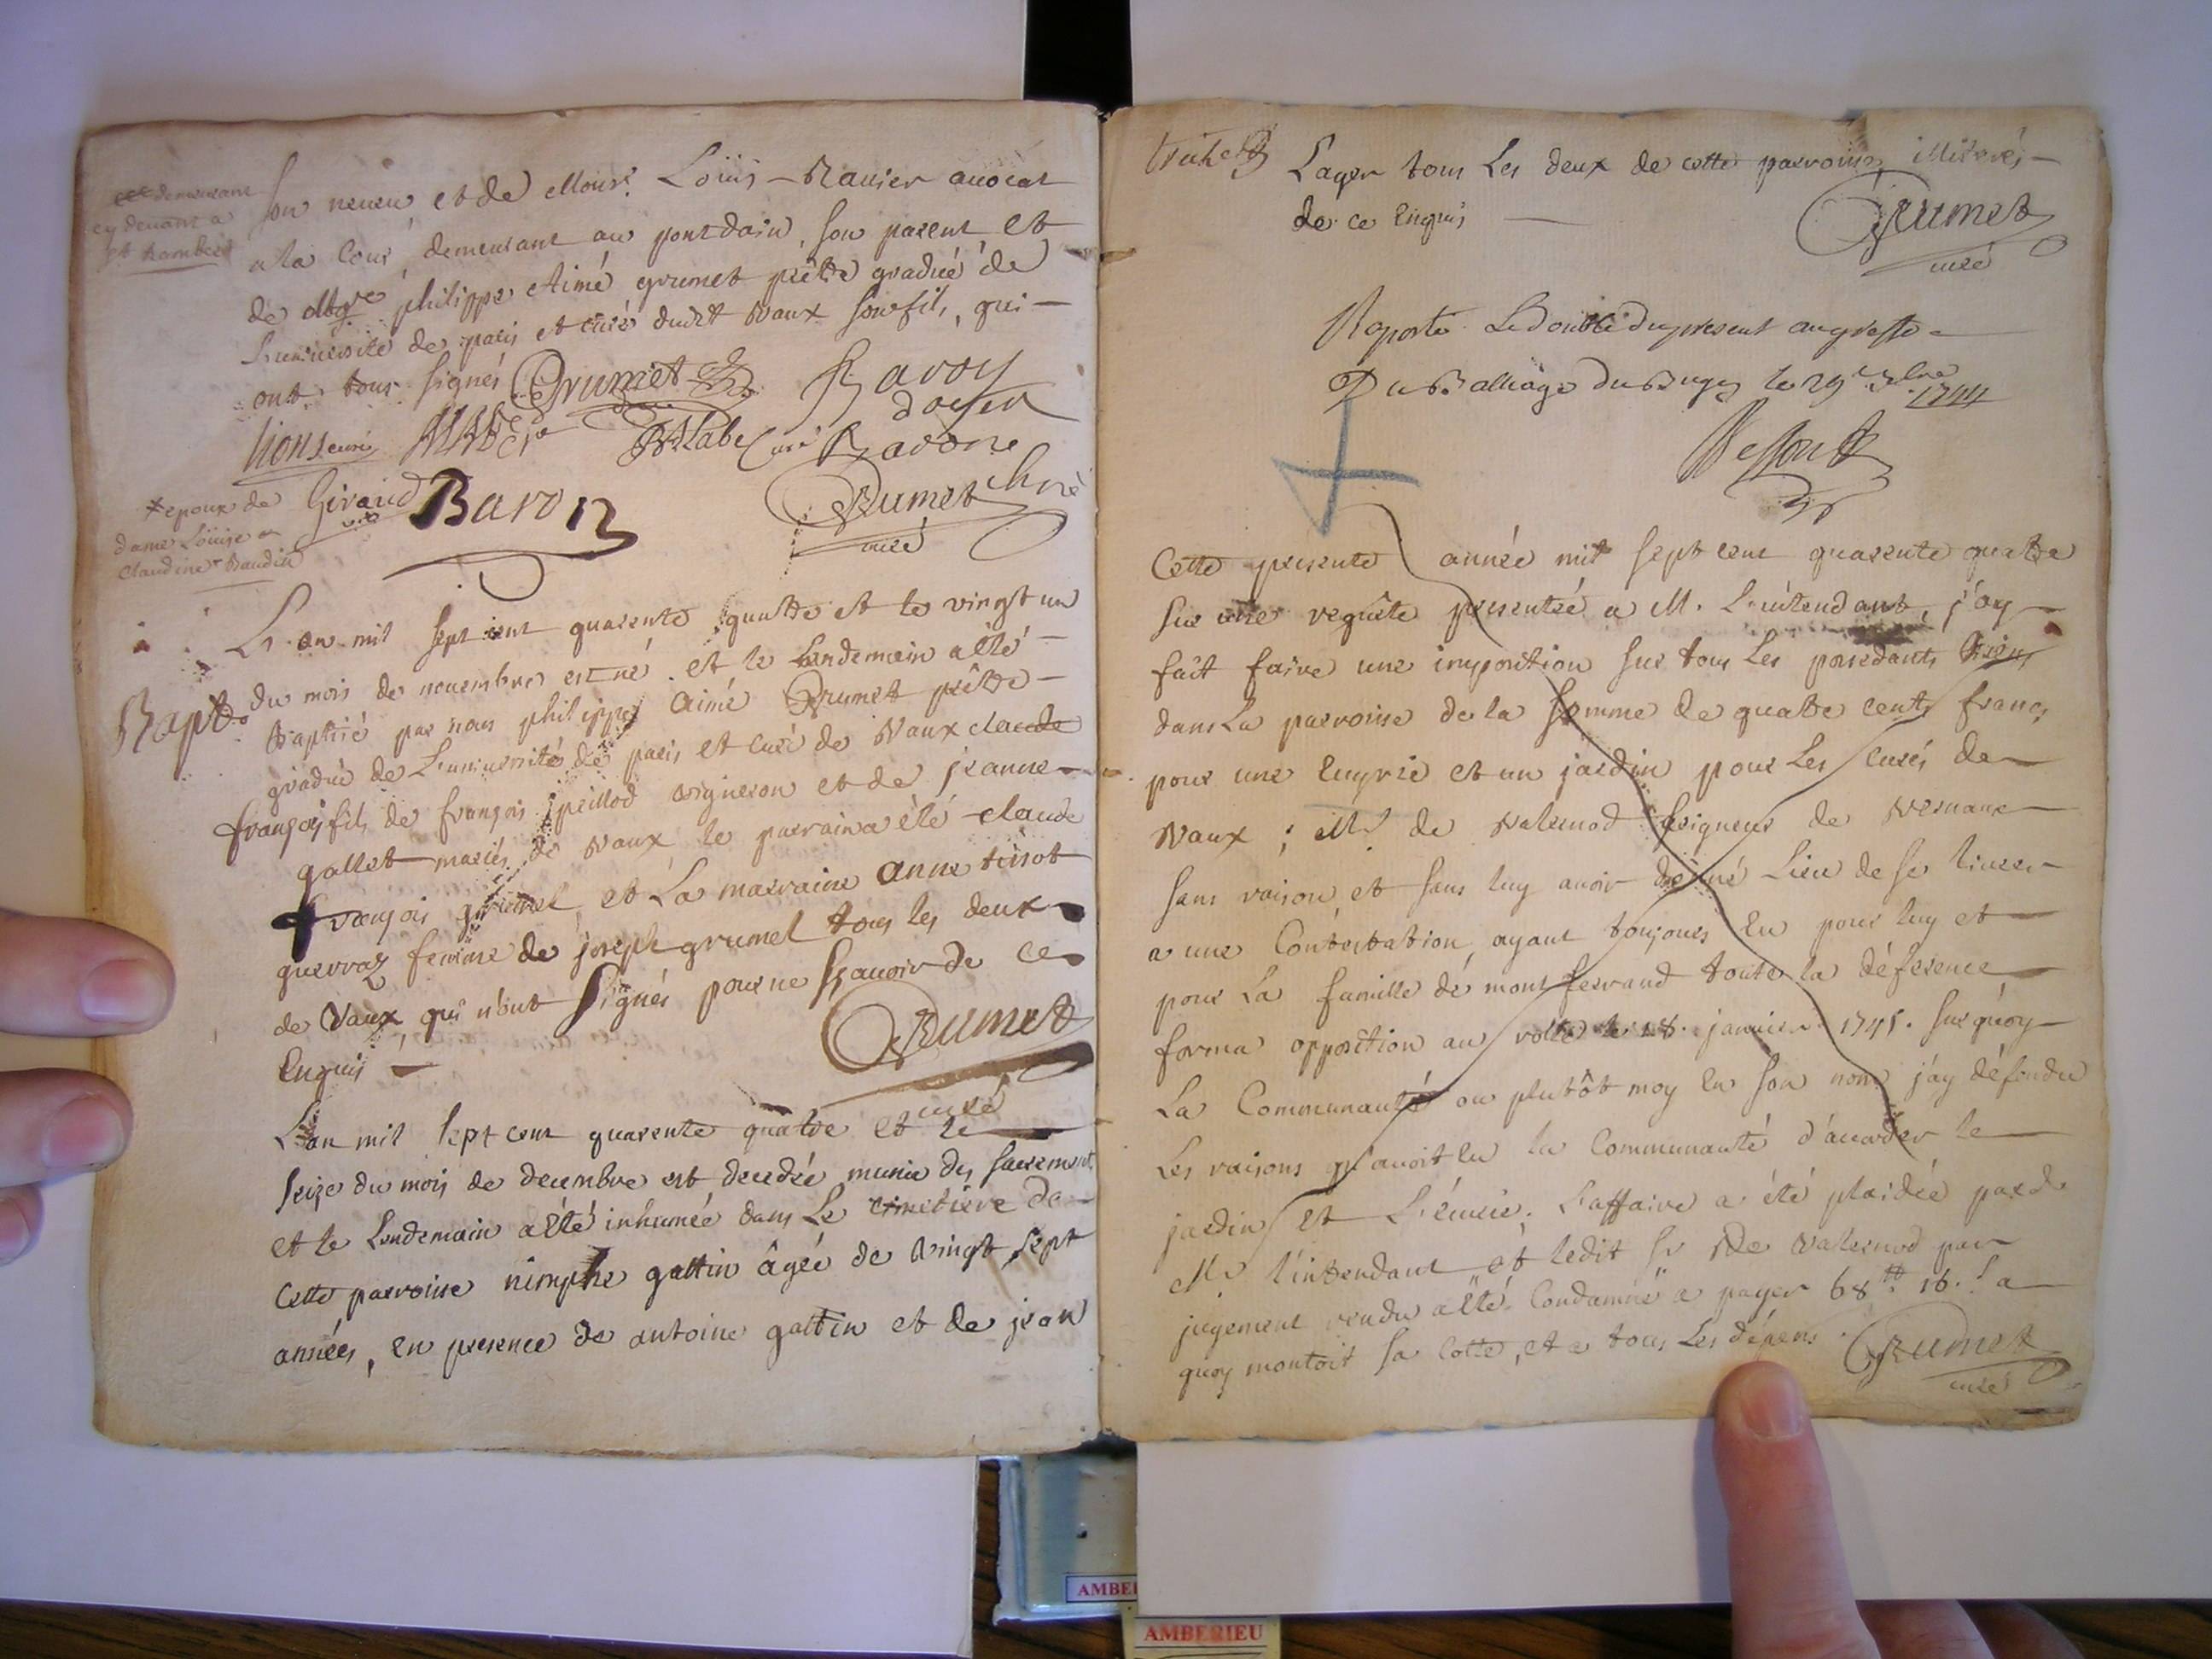 demeurant
cy devant a
st Rambert
son neveu et de Mour. Loüis - Ravier avocat
a la Cour, demeurant au pontdain, son parent et
de Mgre philippe Aimé grumet prêtre gradué de
L'université de paris et curé dudit Vaux son fils, qui -
ont tous signés Grumet
Savoy
doyen
Lions curé
Labe curé
*epoux de
dame Loüise
claudine Baudin
Giraud
Baron
Grumet
curé
L'an mil sept cent quarente quattre et le vingt un
Bapt.
du mois de novembre est né et le lendemain a été -
baptisé par nous philippe Aimé Grumet prêtre -
gradué de L'université de paris et curé de Vaux claude
françois fils de françois peillod vigneron et de jeanne -
gallet mariés de Vaux le parrain a été claude
françois grumel et La marraine anne tissot
guerraz femme de joseph grumel tous les deux
de Vaux qui n'ont signés pour ne sçavoir de ce
Enquis -
Grumet
curé
L'an mil sept cent quarente quatre et le
seize du mois de decembre est decedée munie des sacrements
et le lendemain a été inhumée dans Le cimetiere de -
cette parroisse nimphe gattin âgée de vingt sept
années, en presence de antoine gattin et de jean
Lager tous Les deux de cette parroisse, illiterés -
de ce Enquis -
Grumet
curé
Raporté Le double du present au greffe
Du Balliage du Bugey le 29e Xbre
1744
Cette presente année mil sept cent quarente quatre
sur une requête presentée a M. L'intendant, j'ay -
fait faire une imposition sur tous Les possedants biens
dans La parroisse de la somme de quatre cents francs
pour une Ecurie et un jardin pour Les curés de
Vaux ; Mr de Valernod seigneur de Vernaux
sans raison et sans luy avoir donné Lieu de se livrer
a une Contestation, ayant toujours Eu pour luy et
pour La famille de mont ferrand toute la déference
forma opposition au rolle le 18. janvier 1745. sur quoy
La Communauté ou plutôt moy En son nom j'ay défendu
Les raisons qu'avoit Eu la Communauté d'accorder le
jardin et L'écurie. L'affaire a été plaidée pard.
Mr l'intendant et ledit Sr De Valernod par
jugement rendu a été Condamné a payer 68 tt. 16. s a
quoy montoit sa Cotte, et a tous Les dépens.
Grumet
curé
AMBE
AMBERIEU